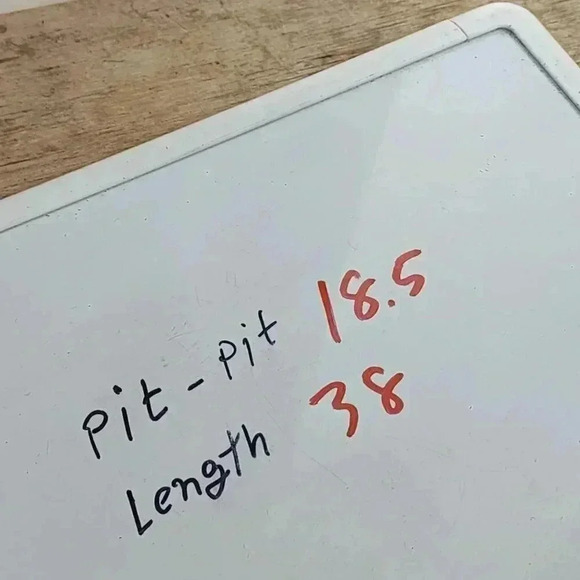 Pit - Pit 18.5
Length 38